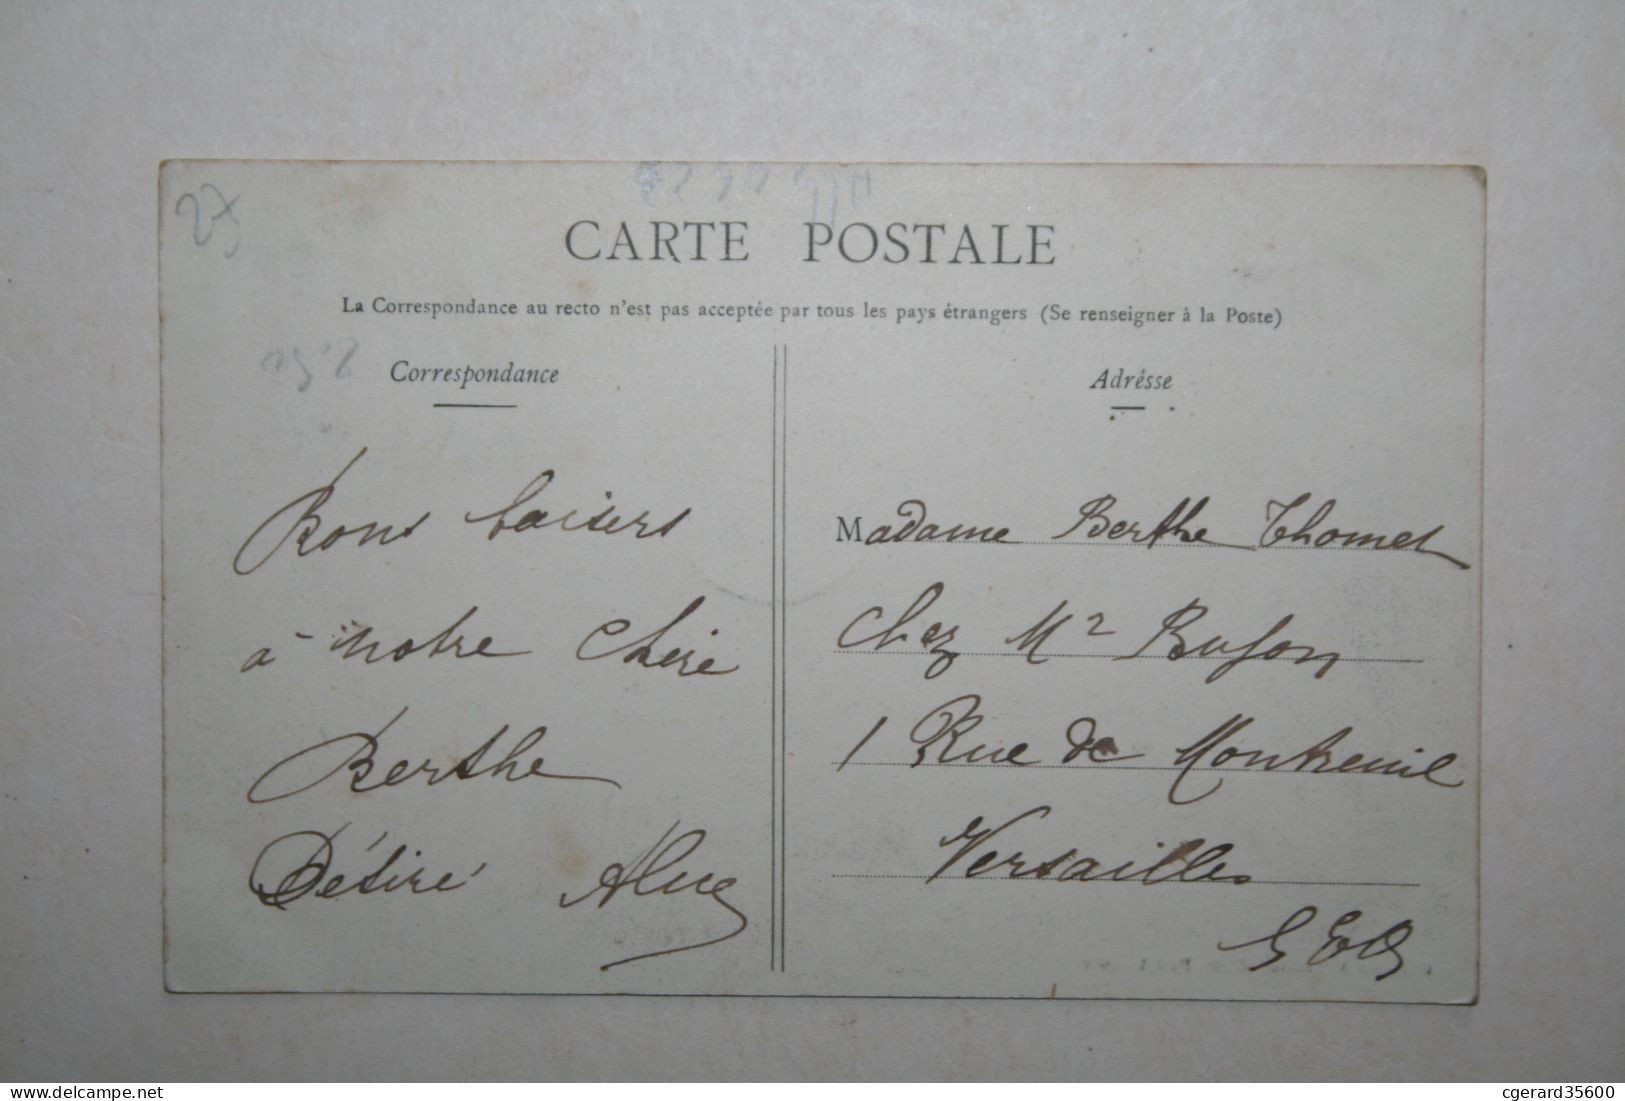 27
CARTE POSTALE
La Correspondance au recto n'est pas acceptée par tous les pays étrangers (Se renseigner à la Poste)
Correspondance
Bons baisers
à notre Chère
Berthe
Désiré
Adresse
Madame Berthe Thomet
Chez Mr Bufon
1 Rue de Montreuil
Versailles
S et O
delcampe.net
cgerard35600